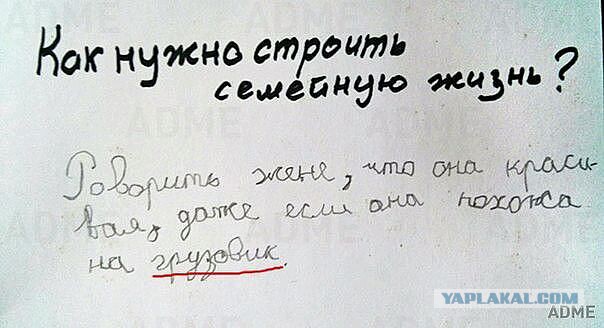 Как нужно строить
семейную жизнь?
Говорить жене, что она краси-
вая, даже если она похожа
на грузовик.
YAPLAKAL.COM
ADME